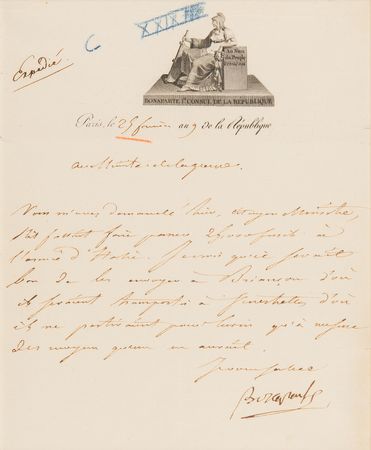 Expédié
C
XXIX
Au Nom
du Peuple
Français
BONAPARTE 1er CONSUL DE LA REPUBLIQUE
Paris, le 25 an 9 de la République
au Ministre de la guerre.
Vous m'avez demandé hier, citoyen Ministre,
s'il fallait faire passer fusils à
l'armée d'Italie. Je crois qu'il serait
bon de les envoyer à Briançon d'où
ils seraient transportés à Fenestrelles d'où
ils ne partiraient pour Turin qu'à mesure
des moyens qu'on en aurait.
Je vous salue
Bonaparte